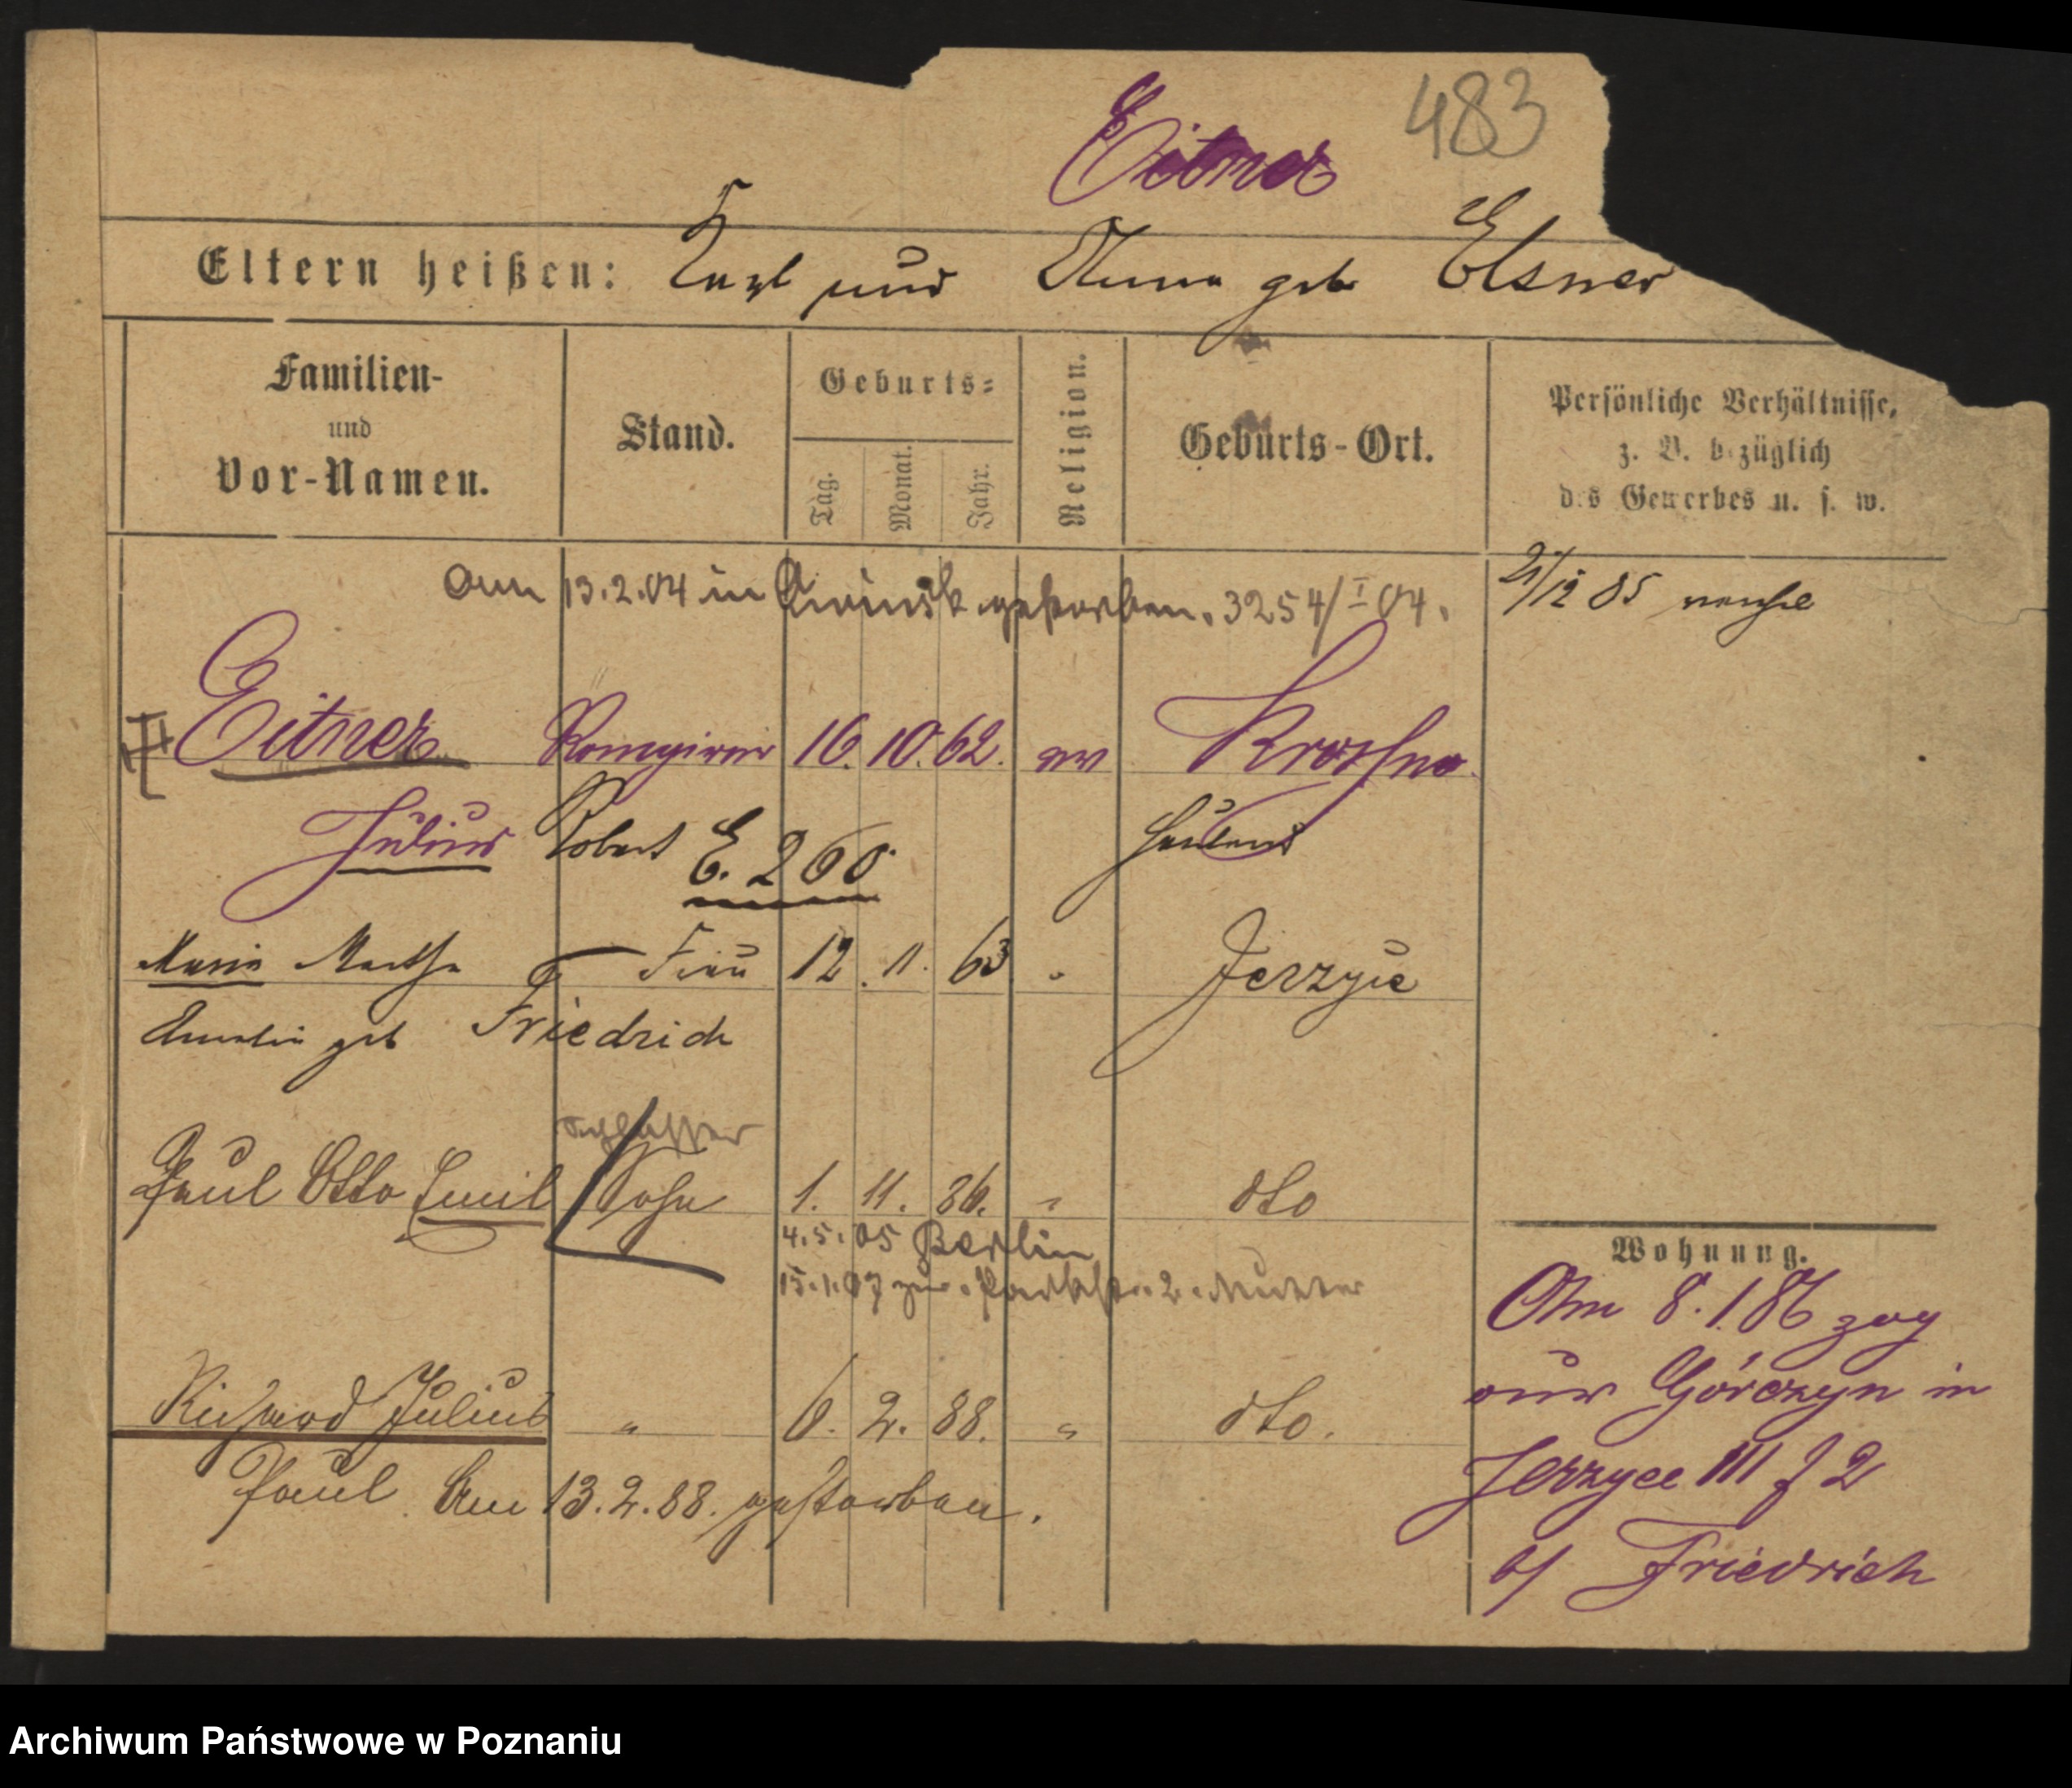 Eitner 483
Eltern heißen: Karl und Anna geb Elsner
Familien-
und
Vor-Namen.
Stand.
Geburts=
Tag.
Monat.
Jahr.
Religion.
Geburts-Ort.
Persönliche Verhältnisse,
z. B. bezüglich
des Gewerbes u. s. w.
Am 13.2.04 in gestorben. 3254/I 04.
21/12 85
Eitner 16. 10. 62. ev Krosno
Julius Robert E. 260
Maria Martha Frau 12. 11. 63 " Jerzyce
Amalia geb Friedrich
Schlosser
Paul Otto Emil Sohn 1. 11. 86. " dto
4.5.05 Berlin
15.1.07 zur. Parkstr. 2. Mutter
Richard Julius " 6. 2. 88. " dto.
Paul. Am 13.2.88. gestorben.
Wohnung.
Am 8.1.86 zog
aus Górczyn in
Jerzyce III J 2
b/ Friedrich
Archiwum Państwowe w Poznaniu